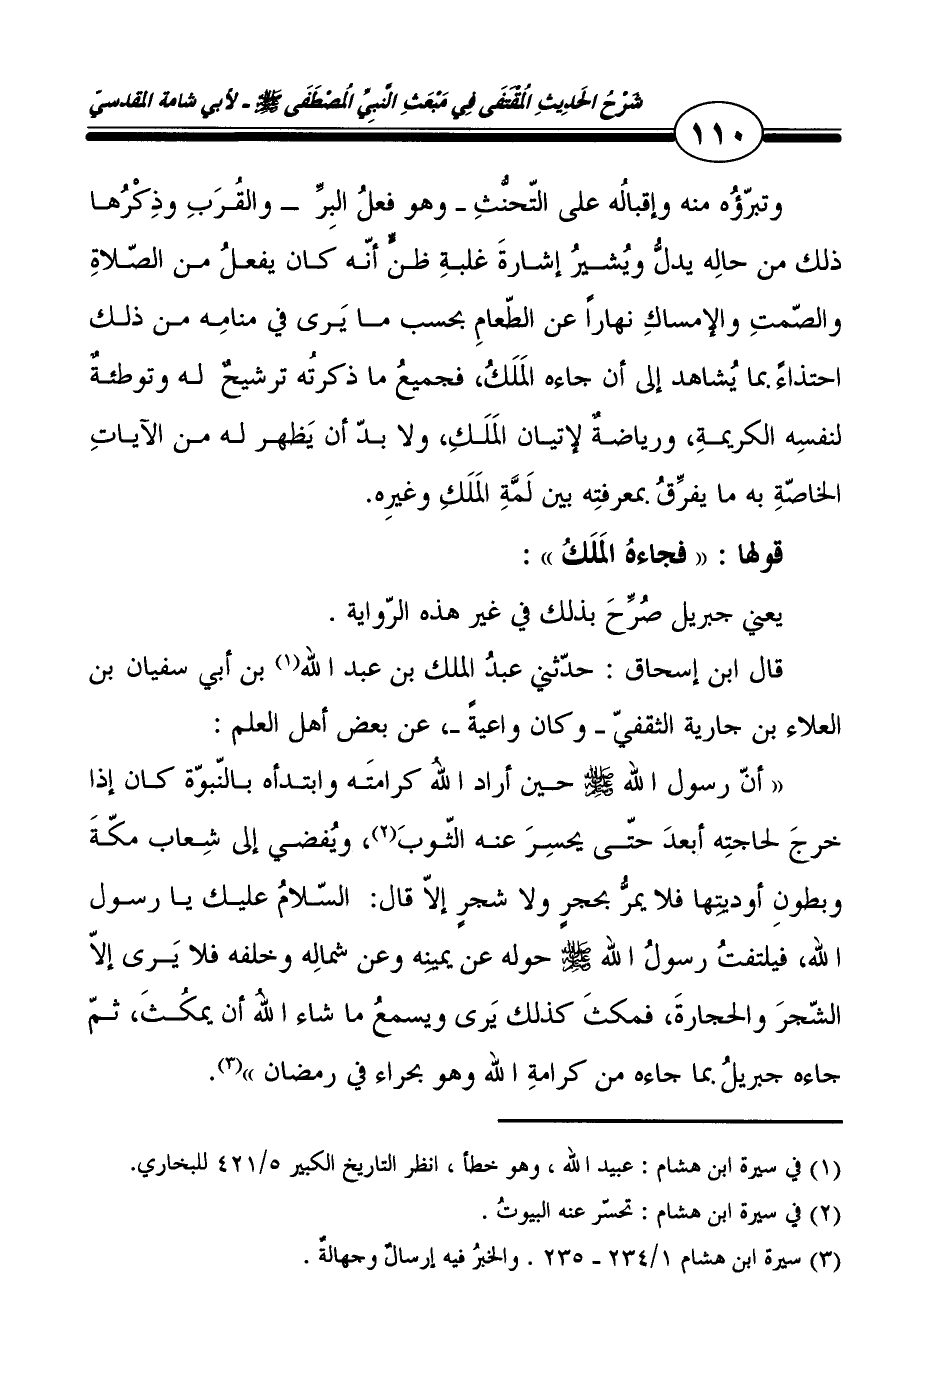 شَرْحُ الحَدِيثِ المُقْتَفَى فِي مَبْعَثِ النَّبِيِّ المُصْطَفَى ﷺ - لأبي شامة المقدسيّ
١١٠
وتبرّؤُه منه وإقبالُه على التّحنُّثِ ـ وهو فعلُ البِرِّ ــ والقُرَبِ وذِكْرُها
ذلك من حالِه يدلُّ ويُشيرُ إشارةَ غلبةِ ظنٍّ أنّه كان يفعلُ من الصّلاةِ
والصّمتِ والإمساكِ نهاراً عن الطّعامِ بحسب ما يَرى في منامِه من ذلك
احتذاءً بما يُشاهد إلى أن جاءه المَلَكُ، فجميعُ ما ذكرتُه ترشيحٌ له وتوطئةٌ
لنفسِه الكريمةِ، ورياضةٌ لإتيان المَلَكِ، ولا بدّ أن يَظهر له من الآياتِ
الخاصّةِ به ما يفرِّقُ بمعرفتِه بين لَمَّةِ المَلَكِ وغيرِه.
قولها : « فجاءهُ المَلَكُ » :
يعني جبريل صُرِّحَ بذلك في غير هذه الرّواية .
قال ابن إسحاق : حدّثني عبدُ الملك بن عبد الله(١) بن أبي سفيان بن
العلاء بن جارية الثقفيّ ـ وكان واعيةً ـ، عن بعض أهل العلم :
« أنّ رسول الله ﷺ حين أراد اللهُ كرامتَه وابتدأه بالنّبوّة كان إذا
خرجَ لحاجتِه أبعدَ حتّى يحسِرَ عنه الثّوبَ(٢)، ويُفضي إلى شِعاب مكّةَ
وبطونِ أوديتِها فلا يمرُّ بحجرٍ ولا شجرٍ إلاّ قال: السّلامُ عليك يا رسول
الله، فيلتفتُ رسولُ الله ﷺ حوله عن يمينِه وعن شمالِه وخلفه فلا يَرى إلاّ
الشّجرَ والحجارةَ، فمكثَ كذلك يَرى ويسمعُ ما شاء اللهُ أن يمكُثَ، ثمّ
جاءه جبريلُ بما جاءه من كرامةِ الله وهو بحراء في رمضان »(٣).
(١) في سيرة ابن هشام : عبيد الله ، وهو خطأ ، انظر التاريخ الكبير ٤٢١/٥ للبخاري.
(٢) في سيرة ابن هشام : تحسّر عنه البيوتُ .
(٣) سيرة ابن هشام ٢٣٤/١ ـ ٢٣٥ . والخبرُ فيه إرسالٌ وجهالةٌ .